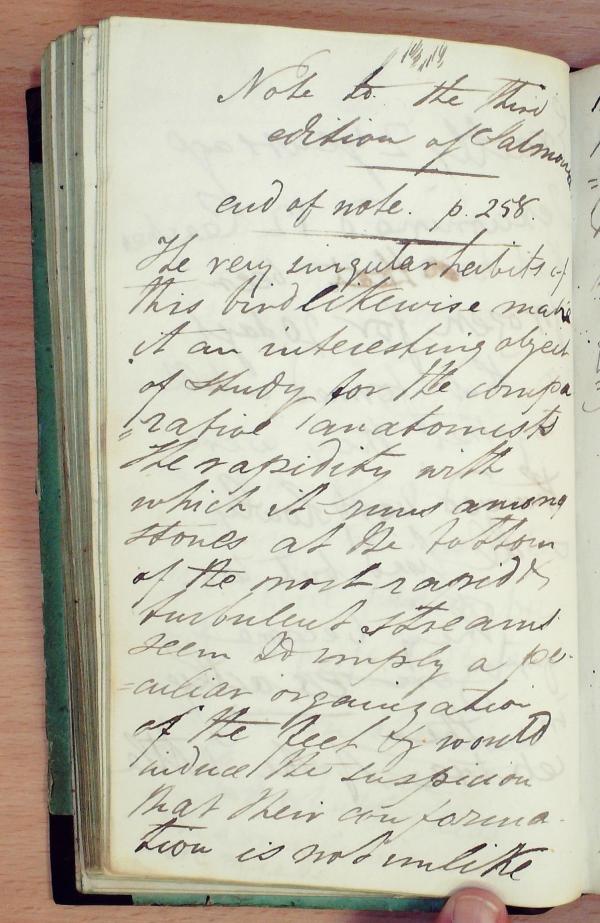 Note to the third
edition of Salmonia
end of note. p. 258.
The very singular habits of
this bird likewise make
it an interesting object
of study for the compa
=rative anatomists
The rapidity with
which it runs among
stones at the bottom
of the most rapid &
turbulent streams
seem to imply a pe-
=culiar organization
of the feet & would
induce the suspicion
that their conforma-
tion is not unlike